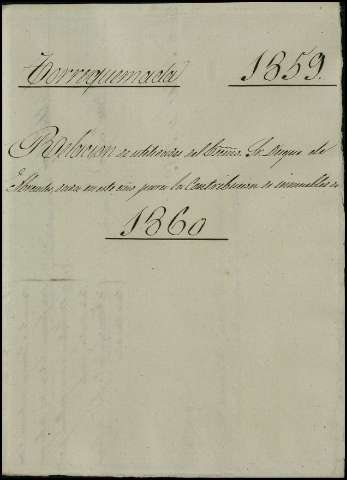 Torrequemada 1859.
Relacion de utilidades del Exmo. Sr. Duque de
Abrantes, dada en este año para la Contribucion de inmuebles de
1860